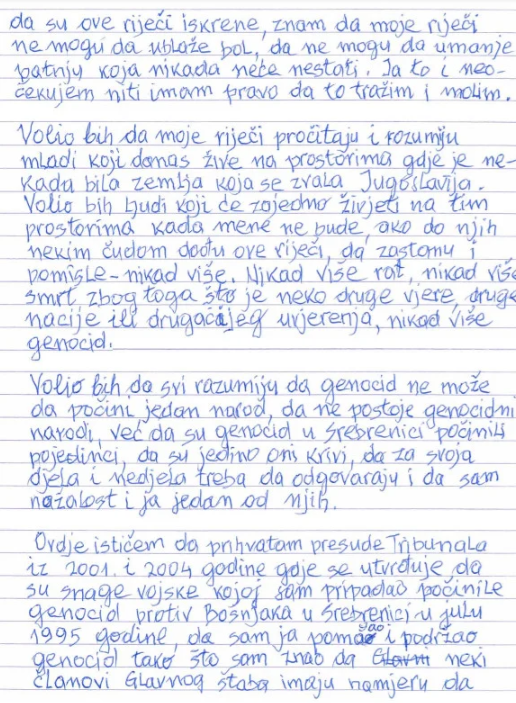 da su ove riječi iskrene, znam da moje riječi
ne mogu da ublaže bol, da ne mogu da umanje
patnju koja nikada neće nestati. Ja to i neo-
čekujem niti imam pravo da to tražim i molim.
Volio bih da moje riječi pročitaju i razumiju
mladi koji danas žive na prostorima gdje je ne-
kada bila zemlja koja se zvala Jugoslavija.
Volio bih ljudi koji će zajedno živjeti na tim
prostorima kada mene ne bude, ako do njih
nekim čudom dođu ove riječi, da zastanu i
pomisle - nikad više. Nikad više rat, nikad više
smrt zbog toga što je neko druge vjere, druge
nacije ili drugačijeg uvjerenja, nikad više
genocid.
Volio bih da svi razumiju da genocid ne može
da počini jedan narod, da ne postoje genocidni
narodi, već da su genocid u Srebrenici počinili
pojedinci, da su jedino oni krivi, da za svoja
djela i nedjela treba da odgovaraju i da sam
nažalost i ja jedan od njih.
Ovdje ističem da prihvatam presude Tribunala
iz 2001. i 2004 godine gdje se utvrđuje da
su snage vojske kojoj sam pripadao počinile
genocid protiv Bošnjaka u Srebrenici u julu
1995 godine, da sam ja pomagao i podržao
genocid tako što sam znao da Glavni neki
članovi Glavnog štaba imaju namjeru da